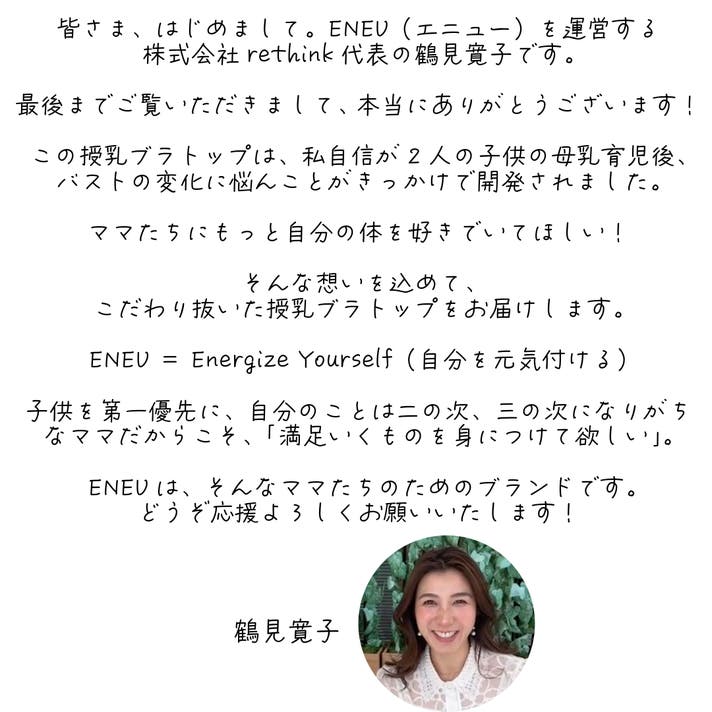 皆さま、はじめまして。ENEU（エニュー）を運営する
株式会社rethink代表の鶴見寛子です。
最後までご覧いただきまして、本当にありがとうございます！
この授乳ブラトップは、私自信が２人の子供の母乳育児後、
バストの変化に悩んことがきっかけで開発されました。
ママたちにもっと自分の体を好きでいてほしい！
そんな想いを込めて、
こだわり抜いた授乳ブラトップをお届けします。
ENEU = Energize Yourself（自分を元気付ける）
子供を第一優先に、自分のことは二の次、三の次になりがち
なママだからこそ、「満足いくものを身につけて欲しい」。
ENEUは、そんなママたちのためのブランドです。
どうぞ応援よろしくお願いいたします！
鶴見寛子